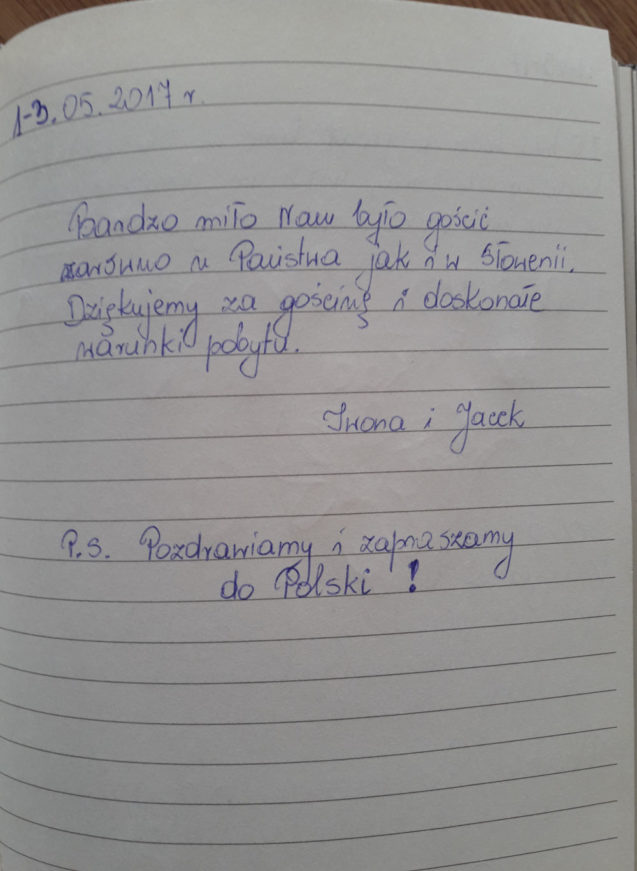 1-3.05.2017 r.
Bardzo miło Nam było gościć
zarówno u Państwa jak i w Słowenii.
Dziękujemy za gościnę i doskonałe
warunki pobytu.
Iwona i Jacek
P.S. Pozdrawiamy i zapraszamy
do Polski !